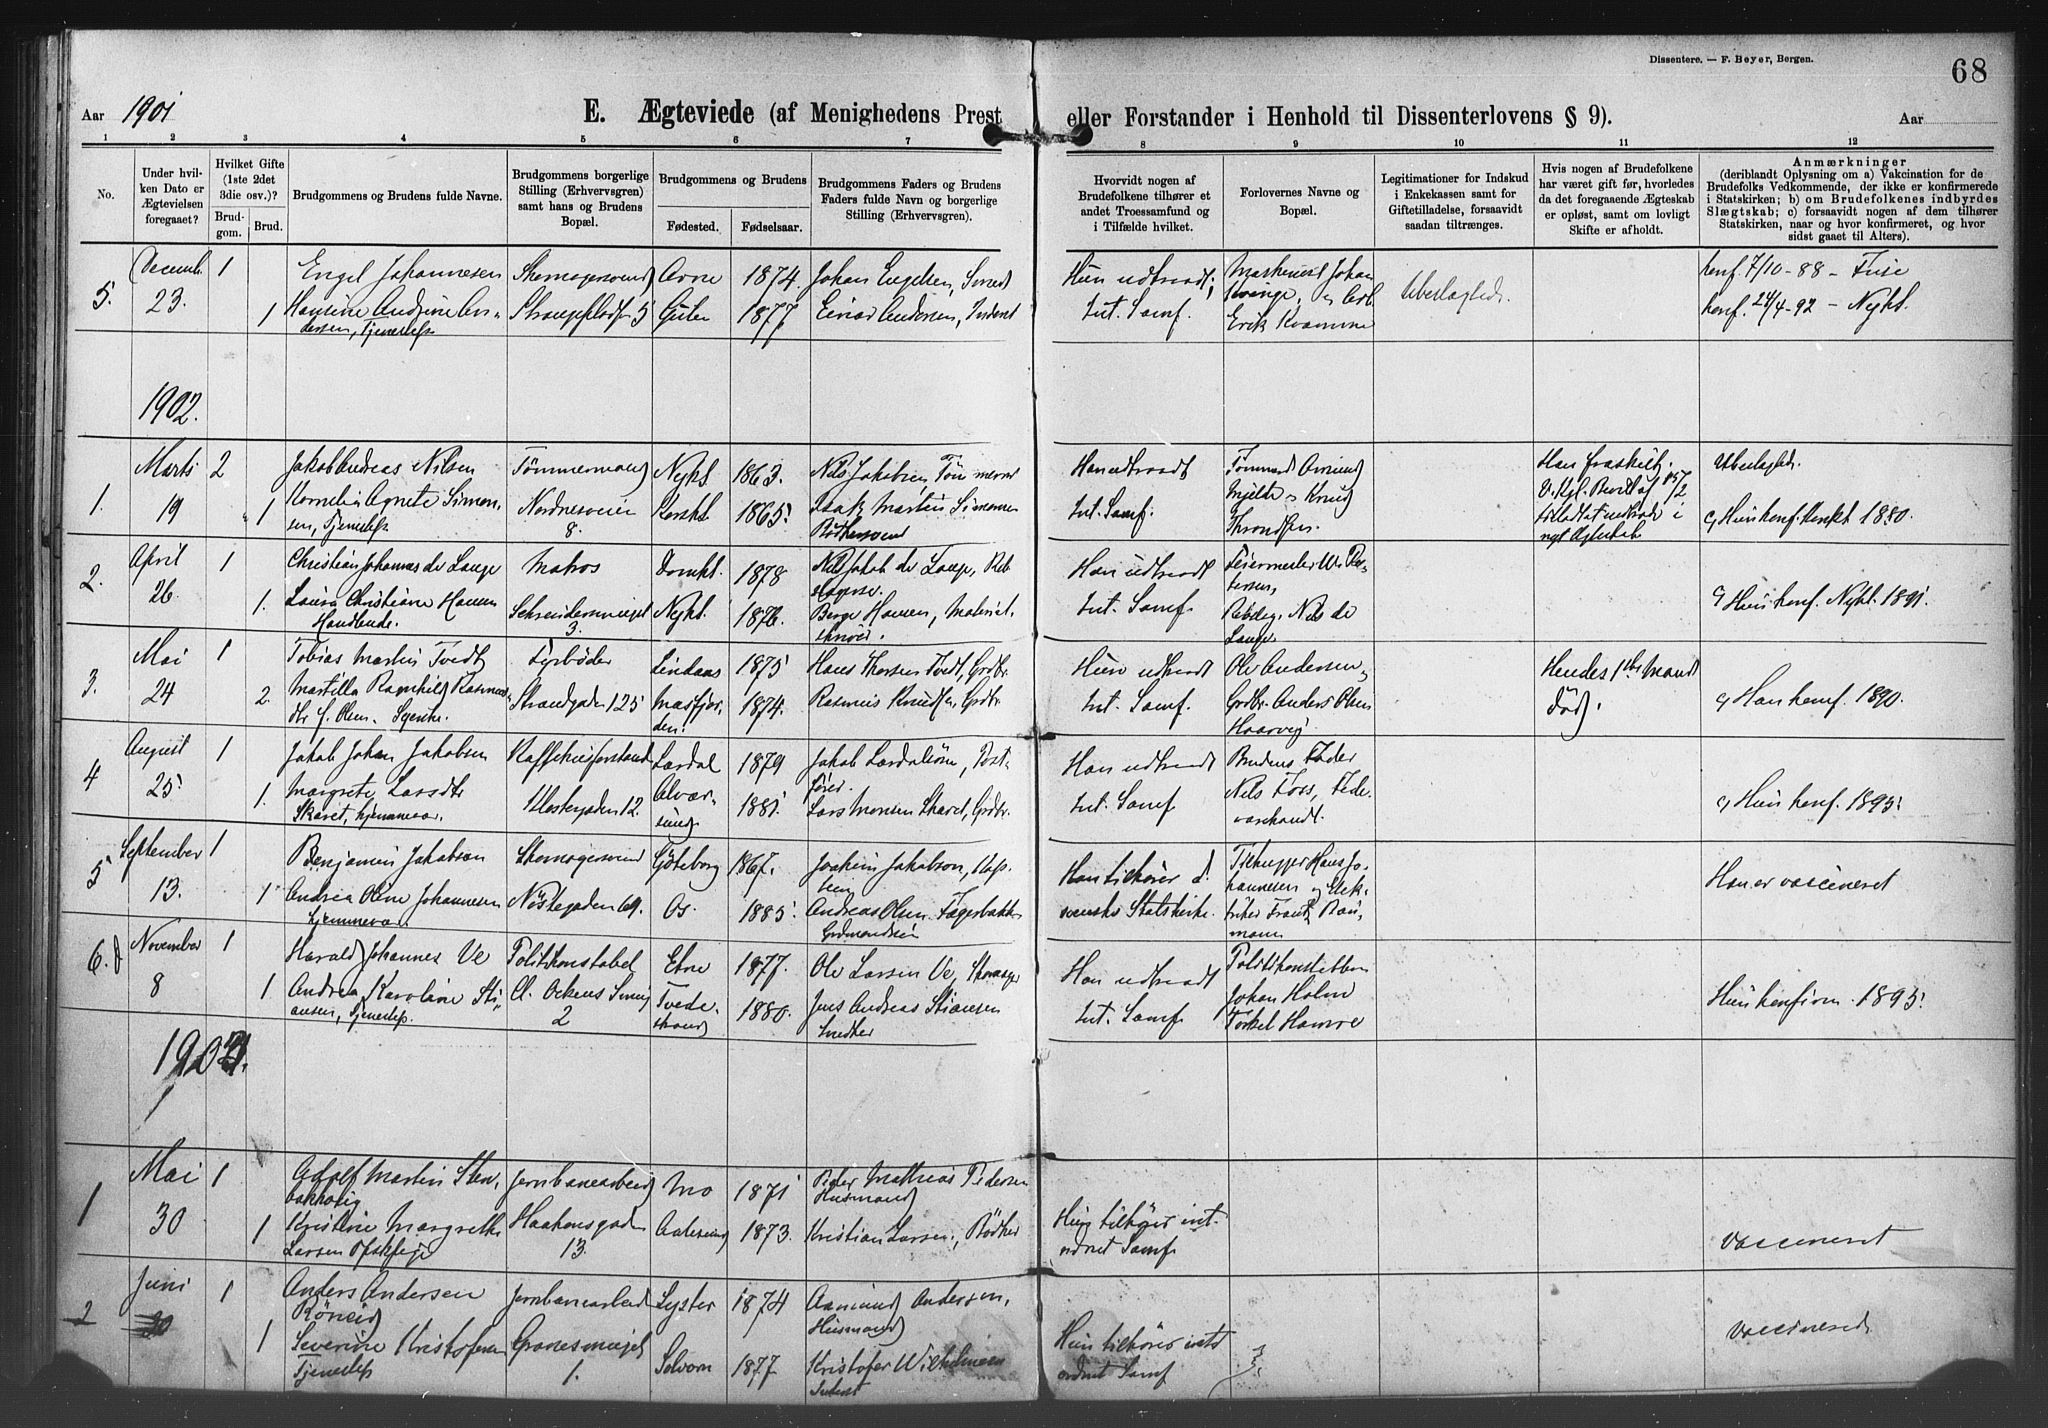 Dissentere. — F. Beyer, Bergen.
68
Aar 1901
E. Ægteviede (af Menighedens Prest eller Forstander i Henhold til Dissenterlovens § 9).
Aar
1 2 3 4 5 6 7 8 9 10 11 12
No.
Under hvil-
ken Dato er
Ægtevielsen
foregaaet?
Hvilket Gifte
(1ste 2det
3die osv.)?
Brud-
gom.
Brud.
Brudgommens og Brudens fulde Navne.
Brudgommens borgerlige
Stilling (Erhvervsgren)
samt hans og Brudens
Bopæl.
Brudgommens og Brudens
Fødested.
Fødselsaar.
Brudgommens Faders og Brudens
Faders fulde Navn og borgerlige
Stilling (Erhvervsgren).
Hvorvidt nogen af
Brudefolkene tilhører et
andet Troessamfund og
i Tilfælde hvilket.
Forlovernes Navne og
Bopæl.
Legitimationer for Indskud
i Enkekassen samt for
Giftetilladelse, forsaavidt
saadan tiltrænges.
Hvis nogen af Brudefolkene
har været gift før, hvorledes
da det foregaaende Ægteskab
er opløst, samt om lovligt
Skifte er afholdt.
Anmærkninger
(deriblandt Oplysning om a) Vakcination for de
Brudefolks Vedkommende, der ikke er konfirmerede
i Statskirken; b) om Brudefolkenes indbyrdes
Slægtskab; c) forsaavidt nogen af dem tilhører
Statskirken, naar og hvor konfirmeret, og hvor
sidst gaaet til Alters).
5.
Decemb.
23.
1
1
Engel Johannesen
Hansine Andrine An-
dersen, Tjenestep.
Skomagersvend
Arne
Gulen
1874.
1877
Johan Engelsen, Smed
Einar Andersen,
Hun udtraadt;
Int. Samf.
Maskinist Johan
Kvinge, og Arb.
Erik Kvamme
Ubeslægtede.
konf. 7/10-88 - Fuse
konf. 24/4-92 - Nykt.
1902.
1.
Marts
19
2
1
Jakob Andreas Nilsen
Kornelia Agnete Simon-
sen, Tjenestep.
Tømmermand
Nordnesveien
8.
Nykt
Korskt
1863.
1865.
Nils Jakobsen, Tømmermd
Isak Martin Simonsen
Bødkersvend
Han udtraadt
Int. Samf.
Tømmerd. Amund
Mjelde og Knud
Throndsen.
Han fraskilt
v. Kgl. Bevil af 15/2
tilladt at indtræde i
nyt Ægteskab
Ubeslægtede.
c) Hun konf. Korskt 1880.
2.
April
26.
1
1.
Christian Johannes de Lange
Laura Christiane Hansen
Handlende.
Matros
Schreudersmuget
3.
Domkt.
Nykt.
1878
1876.
Nils Jakob de Lange, Reb-
slagerse.
Børge Hansen, Material-
skriver.
Han udtraadt
Int. Samf.
Feiermester W. Pe-
tersen,
Rebslag. Nils de
Lange.
c) Hun konf. Nykt. 1891.
3.
Mai
24
1
2.
Tobias Martin Tvedt
Martilla Ragnhild Rasmus-
dtr f. Olsen. Syerske.
Fyrbøder
Strandgaden 125
Lindaas
Masfjor-
den.
1875
1874.
Hans Thorsen Tvedt, Grdbr.
Rasmus Knudsen, Grdbr.
Hun udtraadt
Int. Samf.
Ole Andersen,
Grdbr. Anders Olsen
Haarvig
Hendes 1ste Mand
død.
c) Han konf. 1890.
4
August
25.
1
1.
Jakob Johan Jakobsen
Margrete Larsdtr
Skaret, hjemmevær.
Kaffehusforstand.
Klostergaden 12.
Lærdal
Alver-
sund
1879
1881.
Jakob Lærdalsøren, Post-
fører.
Lars Monsen Skaret, Grdbr.
Han udtraadt
Int. Samf
Brudens Fader
Nils Foss, Fede-
varehandl.
c) Hun konf. 1895.
5
September
13.
1
1
Benjamin Jakobson
Andrea Oline Johannesen
hjemmevær.
Skomagersvend
Nøstegaden 69.
Göteborg
Os.
1867.
1885.
Joakim Jakobson,
Andreas Olsen Fagerbakke
Gdmandssøn
Han tilhører d.
svenske Statskirke.
Hans Jo-
hannesen og Elek-
triker Frantz Bau-
mann
Han er vaccineret
6.
November
8
1
1
Harald Johannes Ve
Andrea Karoline Sti-
ansen, Tjenestep.
Politikonstabel
Cl. Ockens Smug
2
Etne
Tvede-
strand
1877.
1880.
Ole Larsen Ve, Skomager
Jens Andreas Stiansen
Snedker
Han udtraadt
Int. Samf
Politikonstabler
Johan Holm
Torkel Hamre
Hun konfirm. 1895.
1903.
1
Mai
30
1
1
Adolf Martin Sten-
bakholig
Kristine Margrethe
Larsen Ofskfeje
Jernbanearbeid
Haakonsgaden
13.
Mo
Aalesund
1871
1873.
Peder Mathias Pedersen
Husmand
Kristian Larsen, Bødker
Hun tilhører int.
ordnet Samf.
vaccineret
2
Juni
1
1
Anders Andersen
Røneid
Severine Kristofersen
Tjenestep
Jernbanearbeid
Granesmuget
1.
Lyster
Solvorn
1874
1877
Aamund Andersen,
Husmand
Kristofer Wilhelmsen
Inderst
Hun tilhører intet
ordnet Samf
vaccinerede